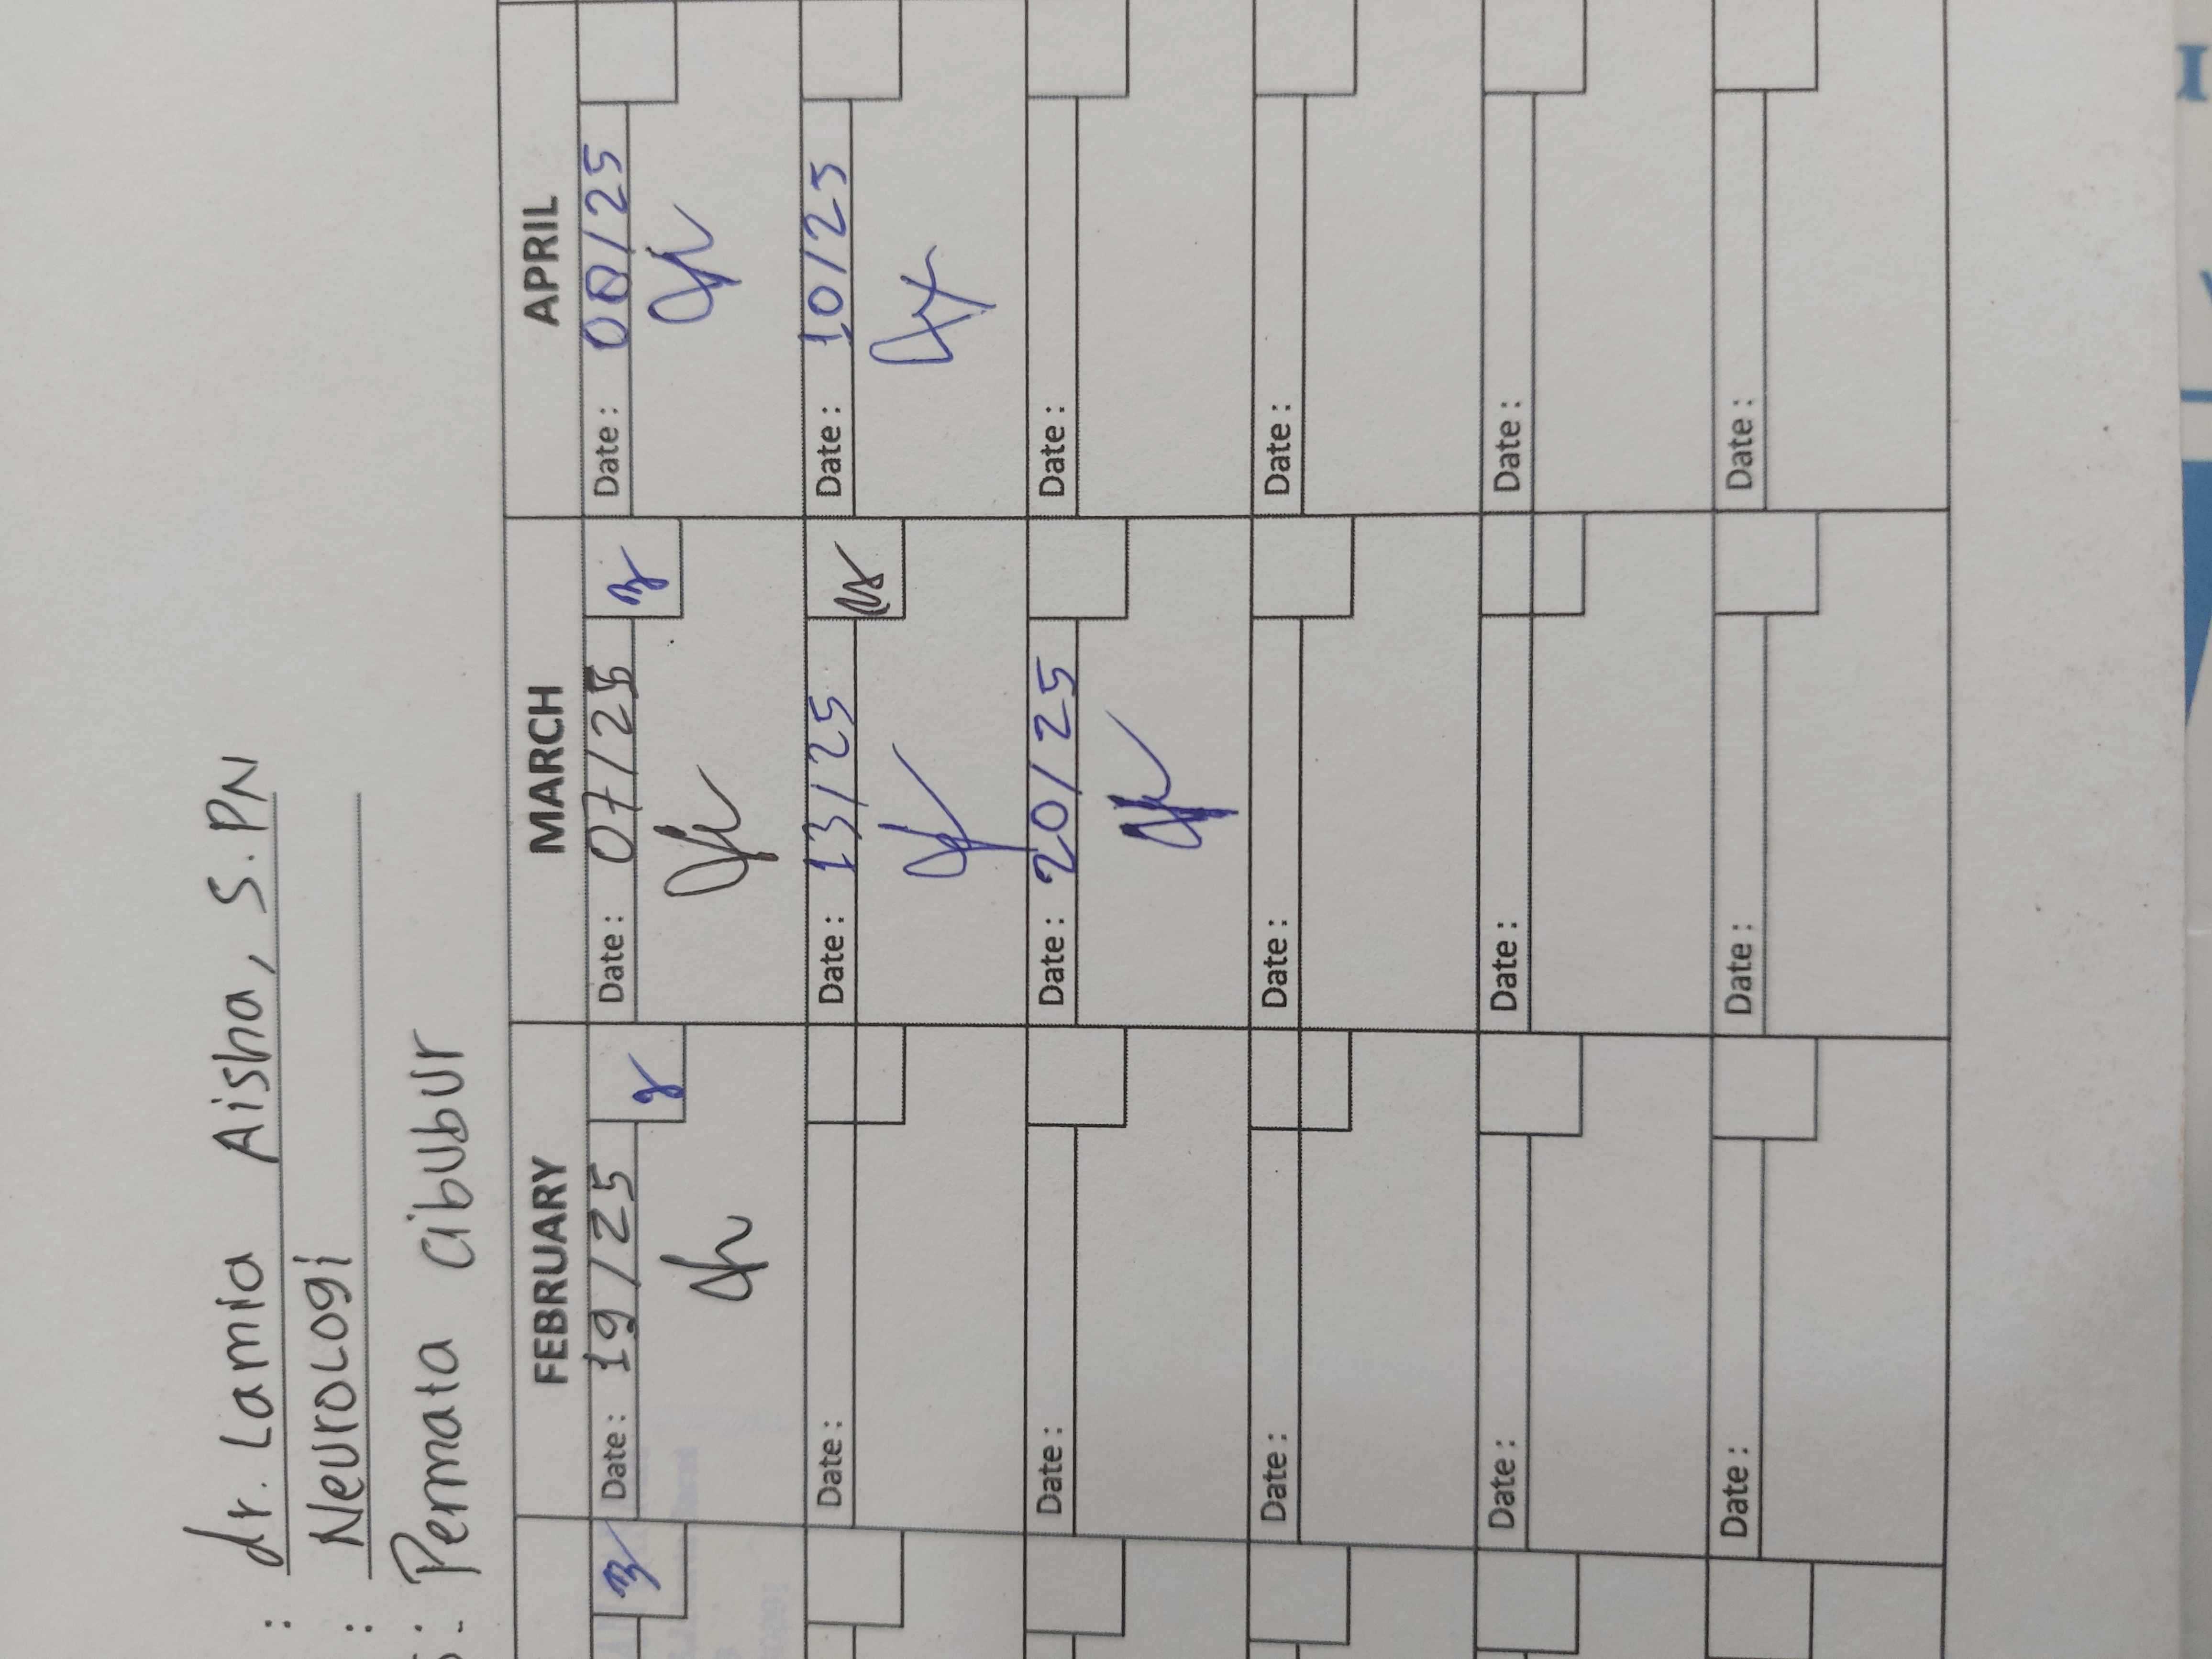 : dr. Lamia Aisha, S.PN
: Neurologi
: Permata cibubur
FEBRUARY MARCH APRIL
Date : 19/25 Date : 07/25 Date : 08/25
Date : Date : 13/25 Date : 10/25
Date : Date : 20/25 Date :
Date : Date : Date :
Date : Date : Date :
Date : Date : Date :